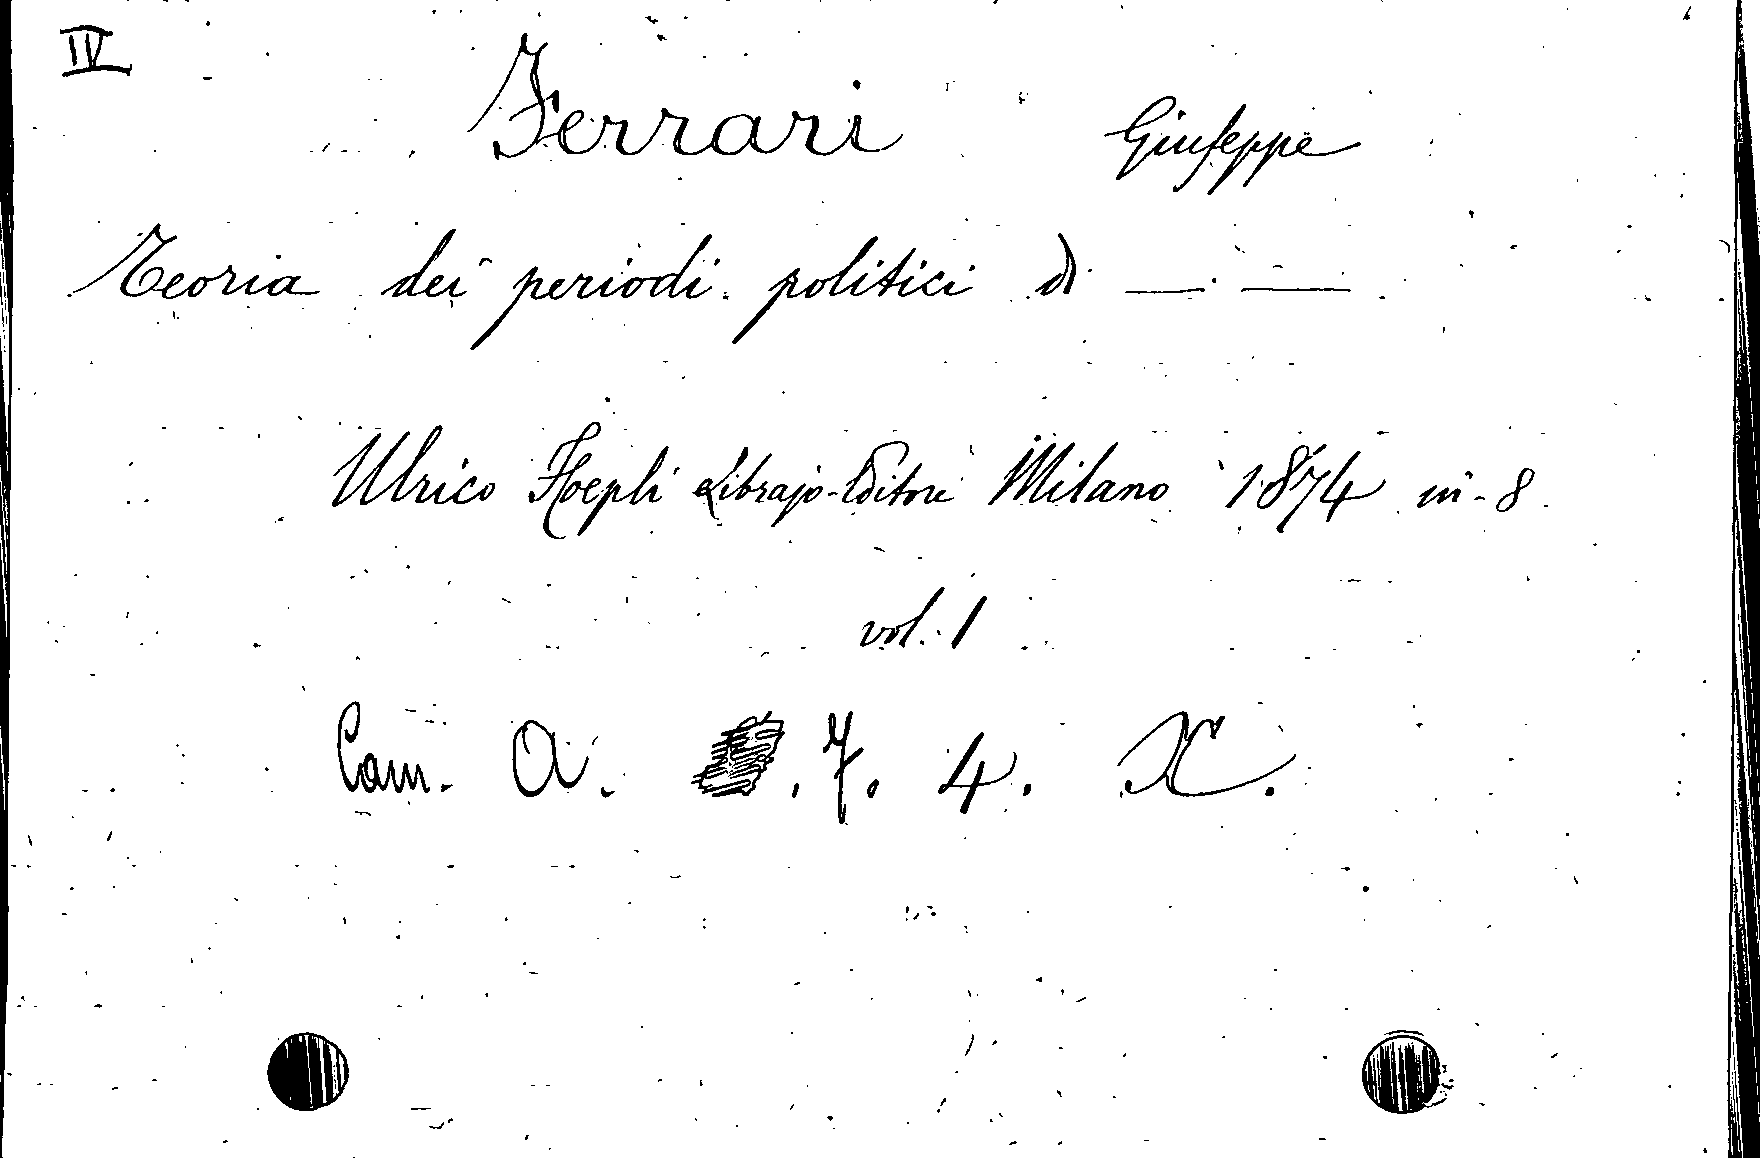 IV
Ferrari Giuseppe
Teoria dei periodi politici di — —
Ulrico Hoepli Librajo-Editore Milano 1874 in-8
vol. 1
Cam. A. . 7. 4. X.